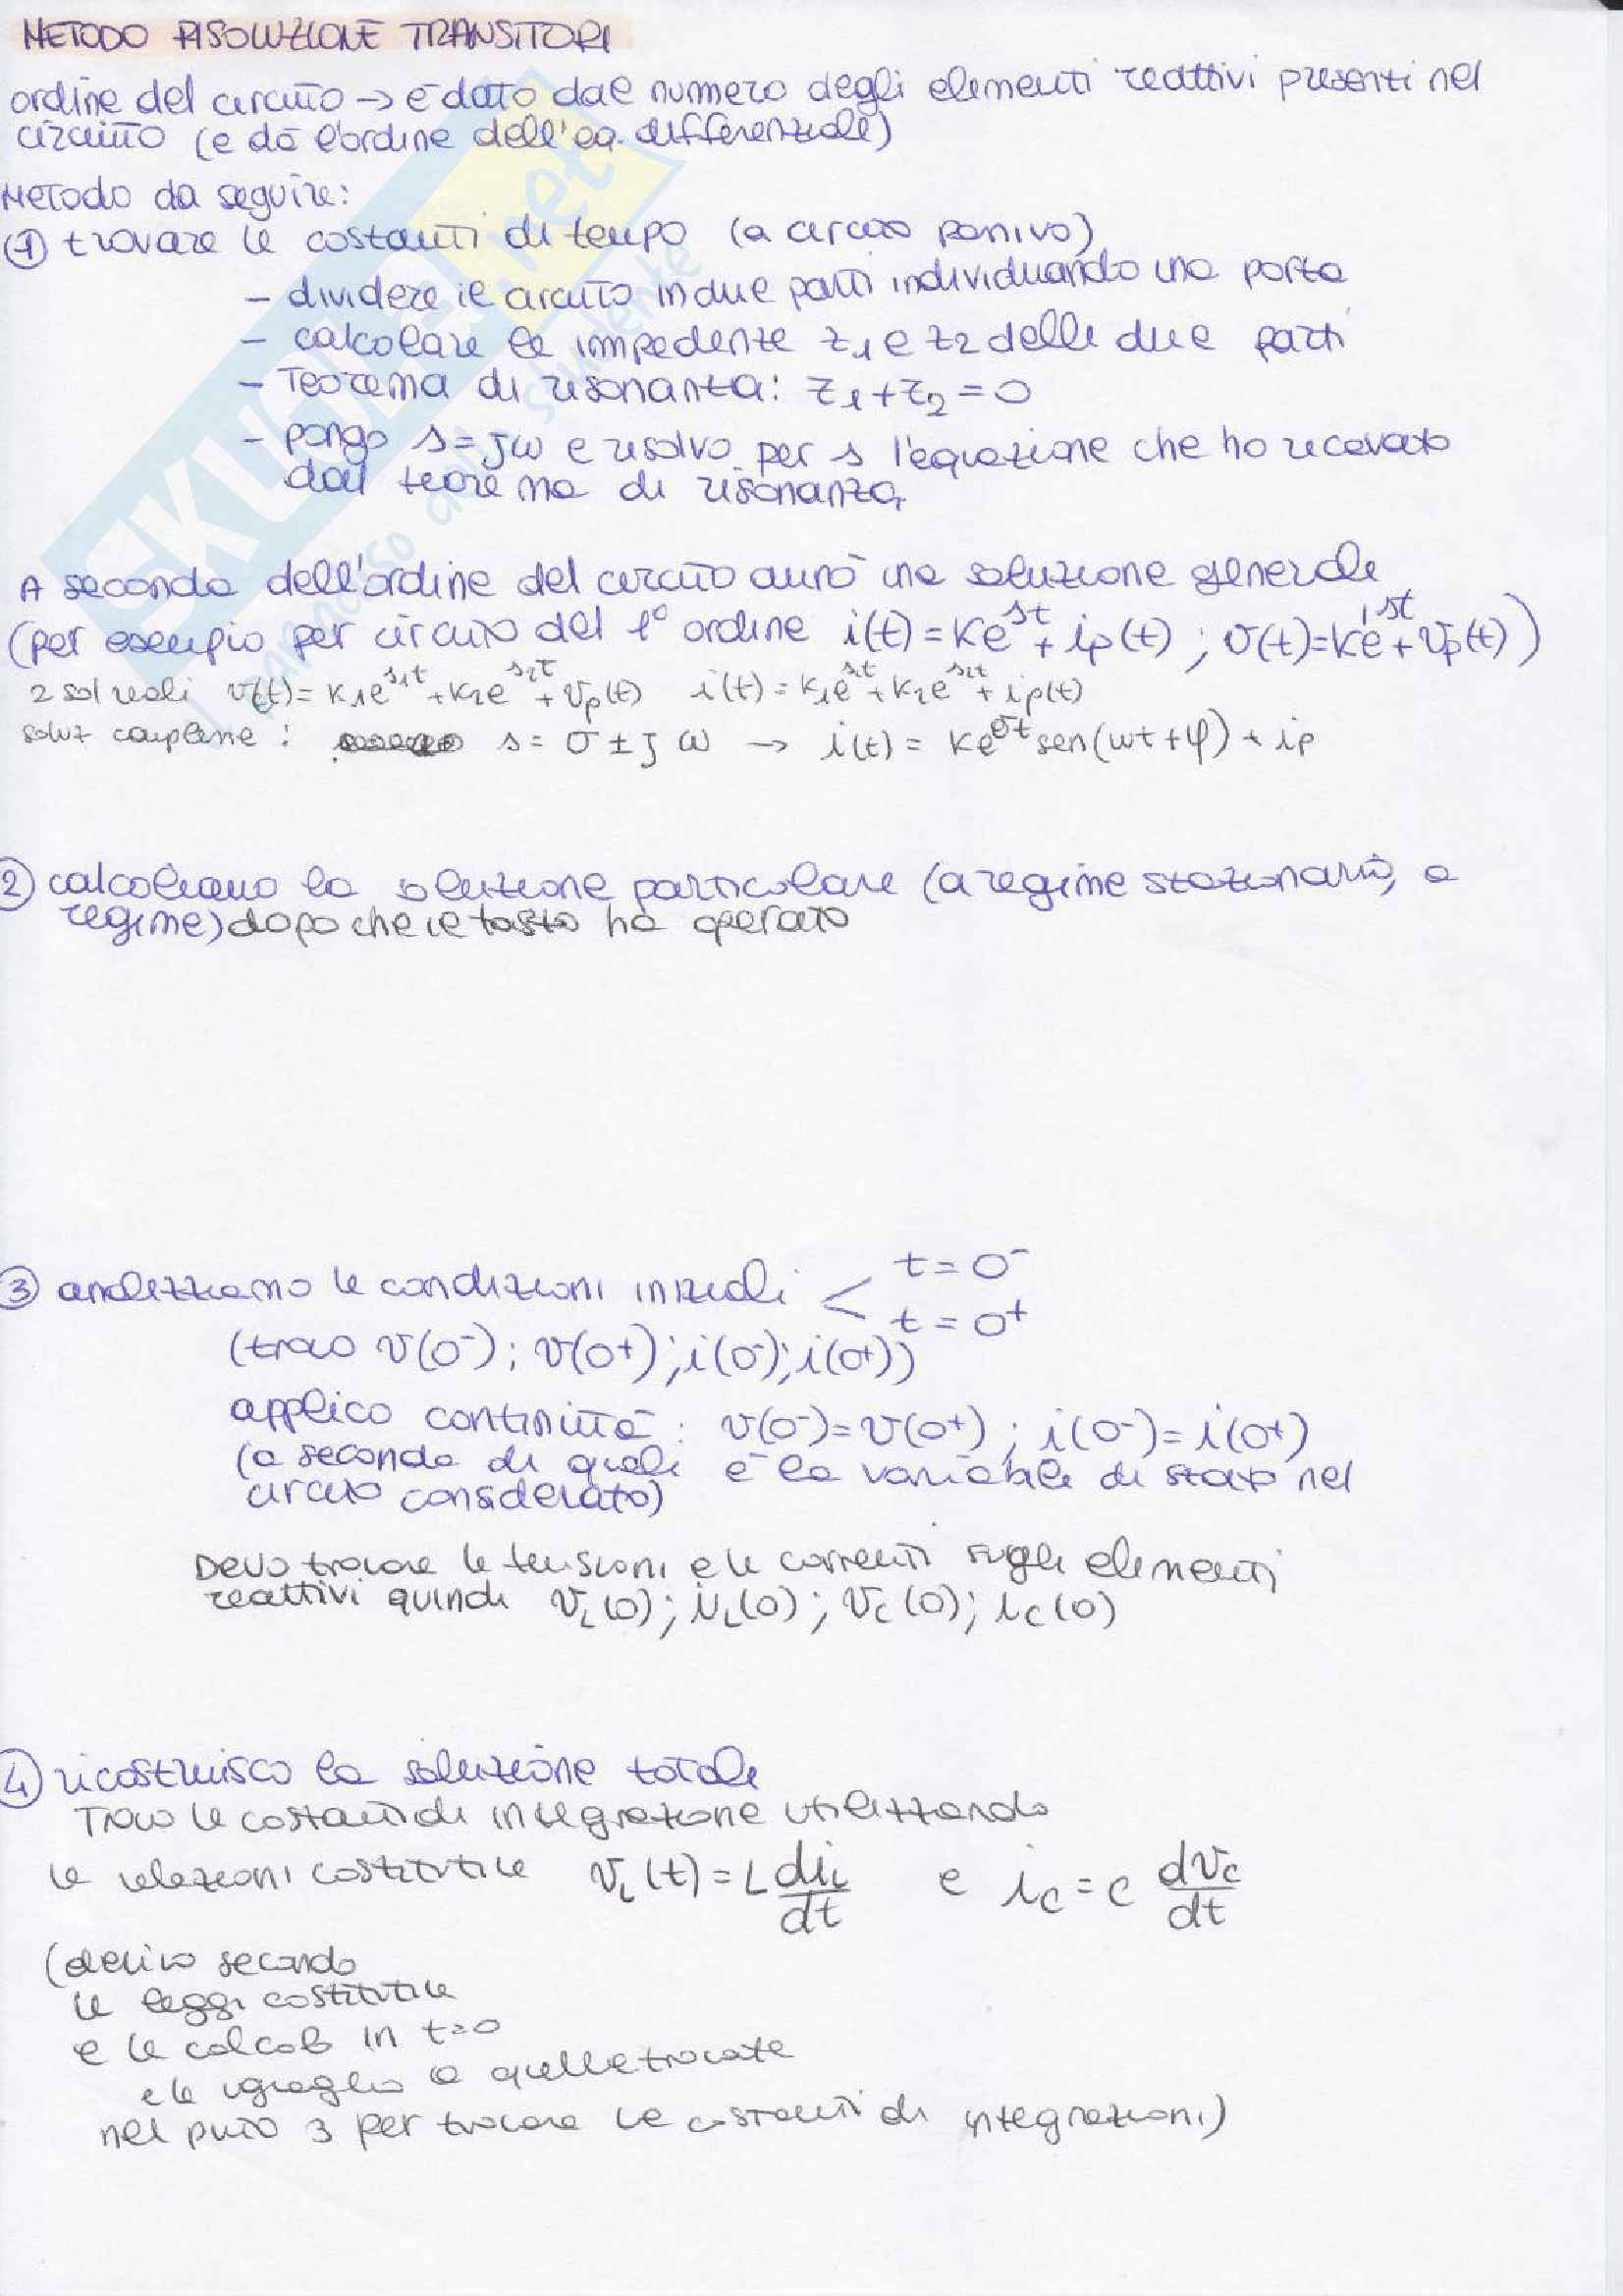 METODO RISOLUZIONE TRANSITORI
ordine del circuito → è dato dal numero degli elementi reattivi presenti nel
circuito (e dà l'ordine dell'eq. differenziale)
Metodo da seguire:
① trovare le costanti di tempo (a circuito passivo)
- dividere il circuito in due parti individuando una porta
- calcolare le impedenze z1 e z2 delle due parti
- Teorema di risonanza: z1+z2=0
- pongo s=jω e risolvo per s l'equazione che ho ricavato
dal teorema di risonanza.
A seconda dell'ordine del circuito avrò una soluzione generale
(per esempio per circuito del 1° ordine i(t)=Ke^st + ip(t) ; v(t)=K'e^st+vp(t))
2 sol reali v(t)=K1e^s1t+K2e^s2t+vp(t) i(t)=K1e^s1t+K2e^s2t+ip(t)
soluz complesse : s=σ±jω → i(t)=Ke^σt sen(ωt+φ)+ip
② calcoliamo la soluzione particolare (a regime stazionario, a
regime) dopo che il tasto ha operato
③ analizziamo le condizioni iniziali < t=0⁻
t=0⁺
(trovo v(0⁻); v(0⁺); i(0⁻); i(0⁺))
applico continuità: v(0⁻)=v(0⁺) ; i(0⁻)=i(0⁺)
(a seconda di quali è la variabile di stato nel
circuito considerato)
Devo trovare le tensioni e le correnti sugli elementi
reattivi quindi vL(0); iL(0); vC(0); iC(0)
④ ricostruisco la soluzione totale
Trovo le costanti di integrazione utilizzando
le relazioni costitutive vL(t)=L diL/dt e iC=C dvC/dt
(derivo secondo
le leggi costitutive
e le calcolo in t=0
e le uguaglio a quelle trovate
nel punto 3 per trovare le costanti di integrazioni)
SKUOLA.net